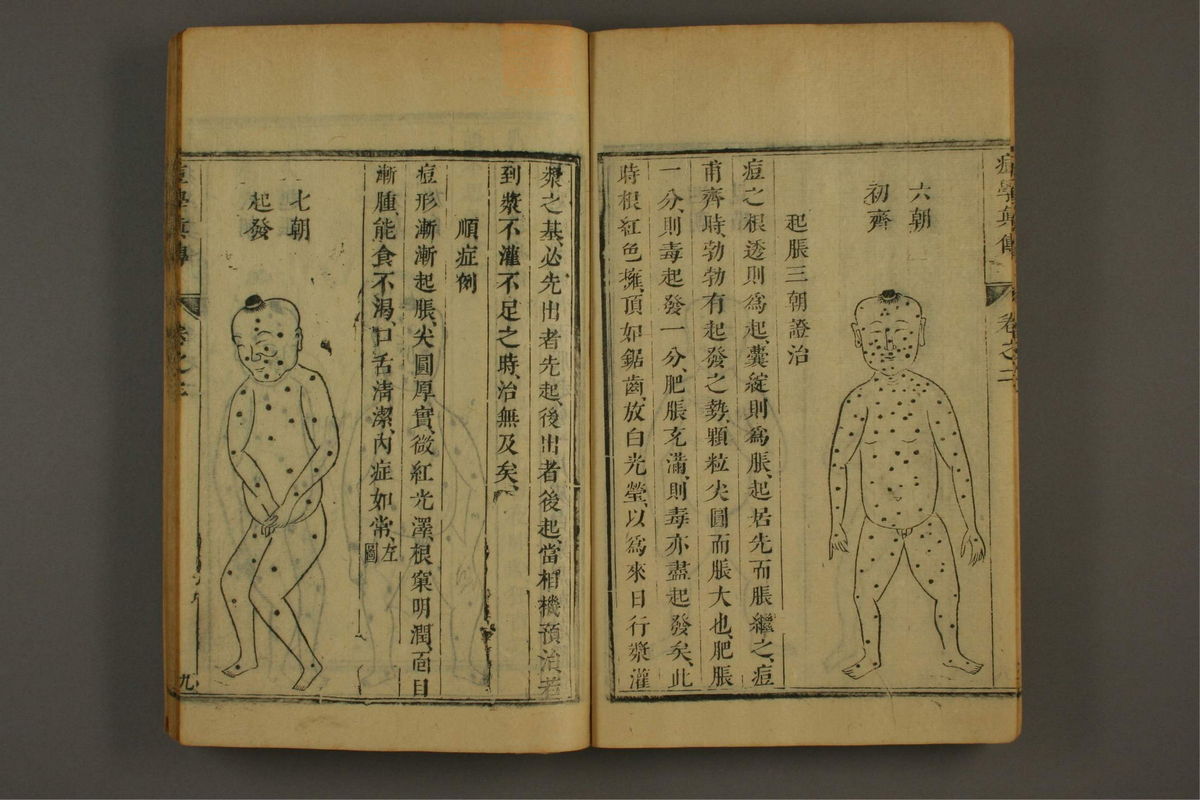 痘學真傳
卷之二
六朝
初齊
起脹三朝證治
痘之根透則爲起、囊綻則爲脹、起居先而脹繼之、痘
甫齊時、勃勃有起發之勢、顆粒尖圓而脹大也、肥脹
一分、則毒起發一分、肥脹充滿、則毒亦盡起發矣、此
時根紅色擁、頂如鋸齒、放白光瑩、以爲來日行漿灌
漿之基、必先出者先起、後出者後起、當相機預治、若
到漿不灌不足之時、治無及矣、
順症例
痘形漸漸起脹、尖圓厚實、微紅光澤、根窠明潤、面目
漸腫、能食不渴、口舌清潔、內症如常、左圖
七朝
起發
痘學真傳
卷之二
九